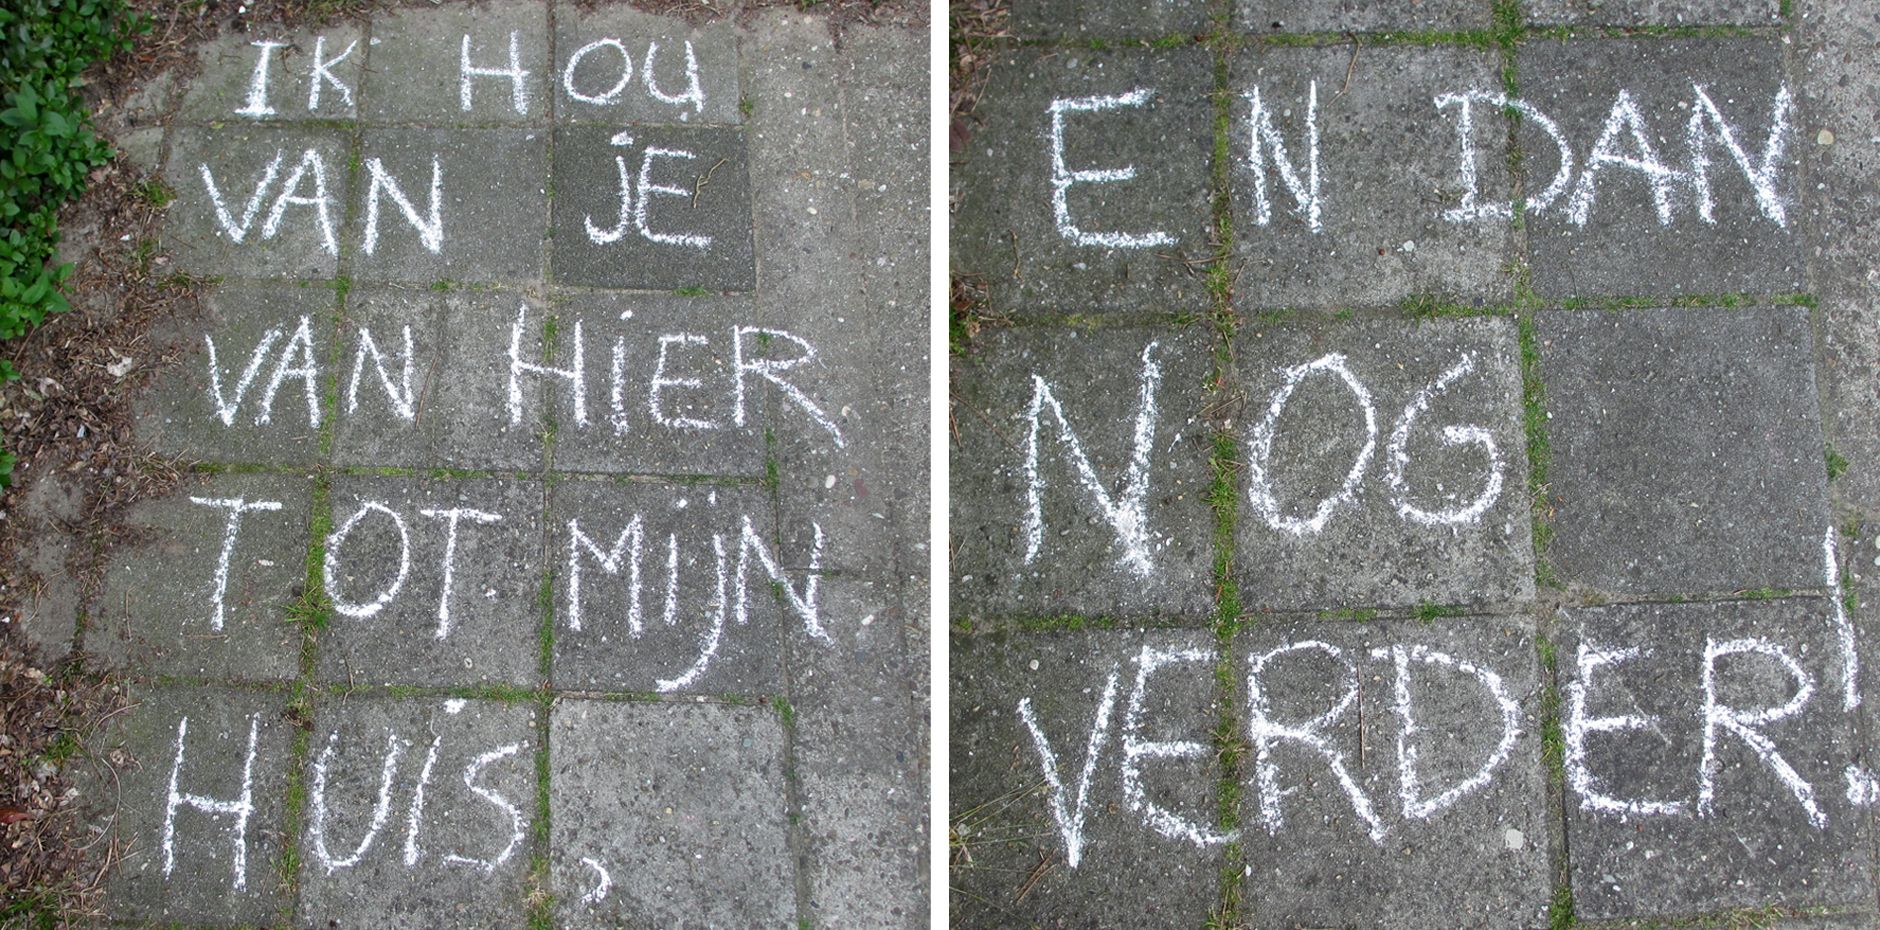 IK HOU
VAN JE
VAN HIER
TOT MIJN
HUIS,
EN DAN
NOG
VERDER!